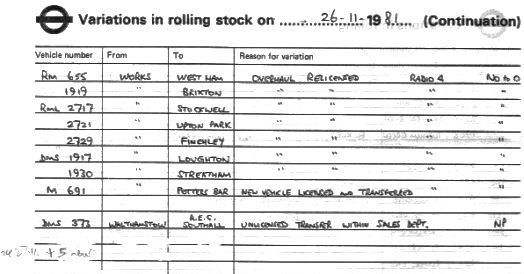 Variations in rolling stock on 26-11-1981 (Continuation)
Vehicle number From To Reason for variation
RM 655 WORKS WEST HAM OVERHAUL RELICENSED RADIO 4 NO to O
1919 " BRIXTON " " " "
RML 2717 " STOCKWELL " " " "
2721 " UPTON PARK " " " "
2729 " FINCHLEY " " " "
DMS 1917 " LOUGHTON " " " "
1930 " STREATHAM " " " "
M 691 " POTTERS BAR NEW VEHICLE LICENSED AND TRANSFERRED " "
DMS 373 WALTHAMSTOW A.E.C. SOUTHALL UNLICENSED TRANSFER WITHIN SALES DEPT. NP
+ 5